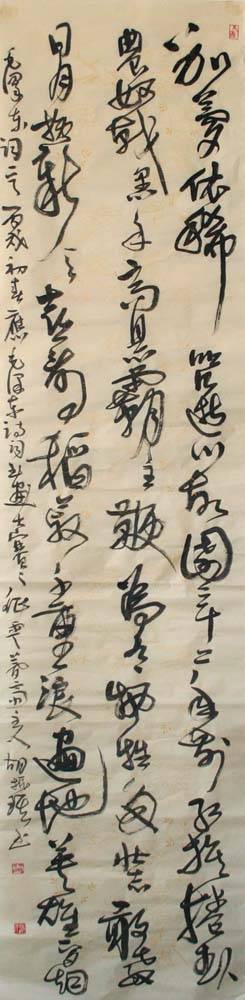 别梦依稀咒逝川故園三十二年前红旗捲起
農奴戟黑手高悬霸主鞭为有牺牲多壮志敢教
日月换新天喜看稻菽千重浪遍地英雄下夕烟
毛泽东词 丙戌初春應毛泽东诗词书畫大賽之征 斋主人胡 书